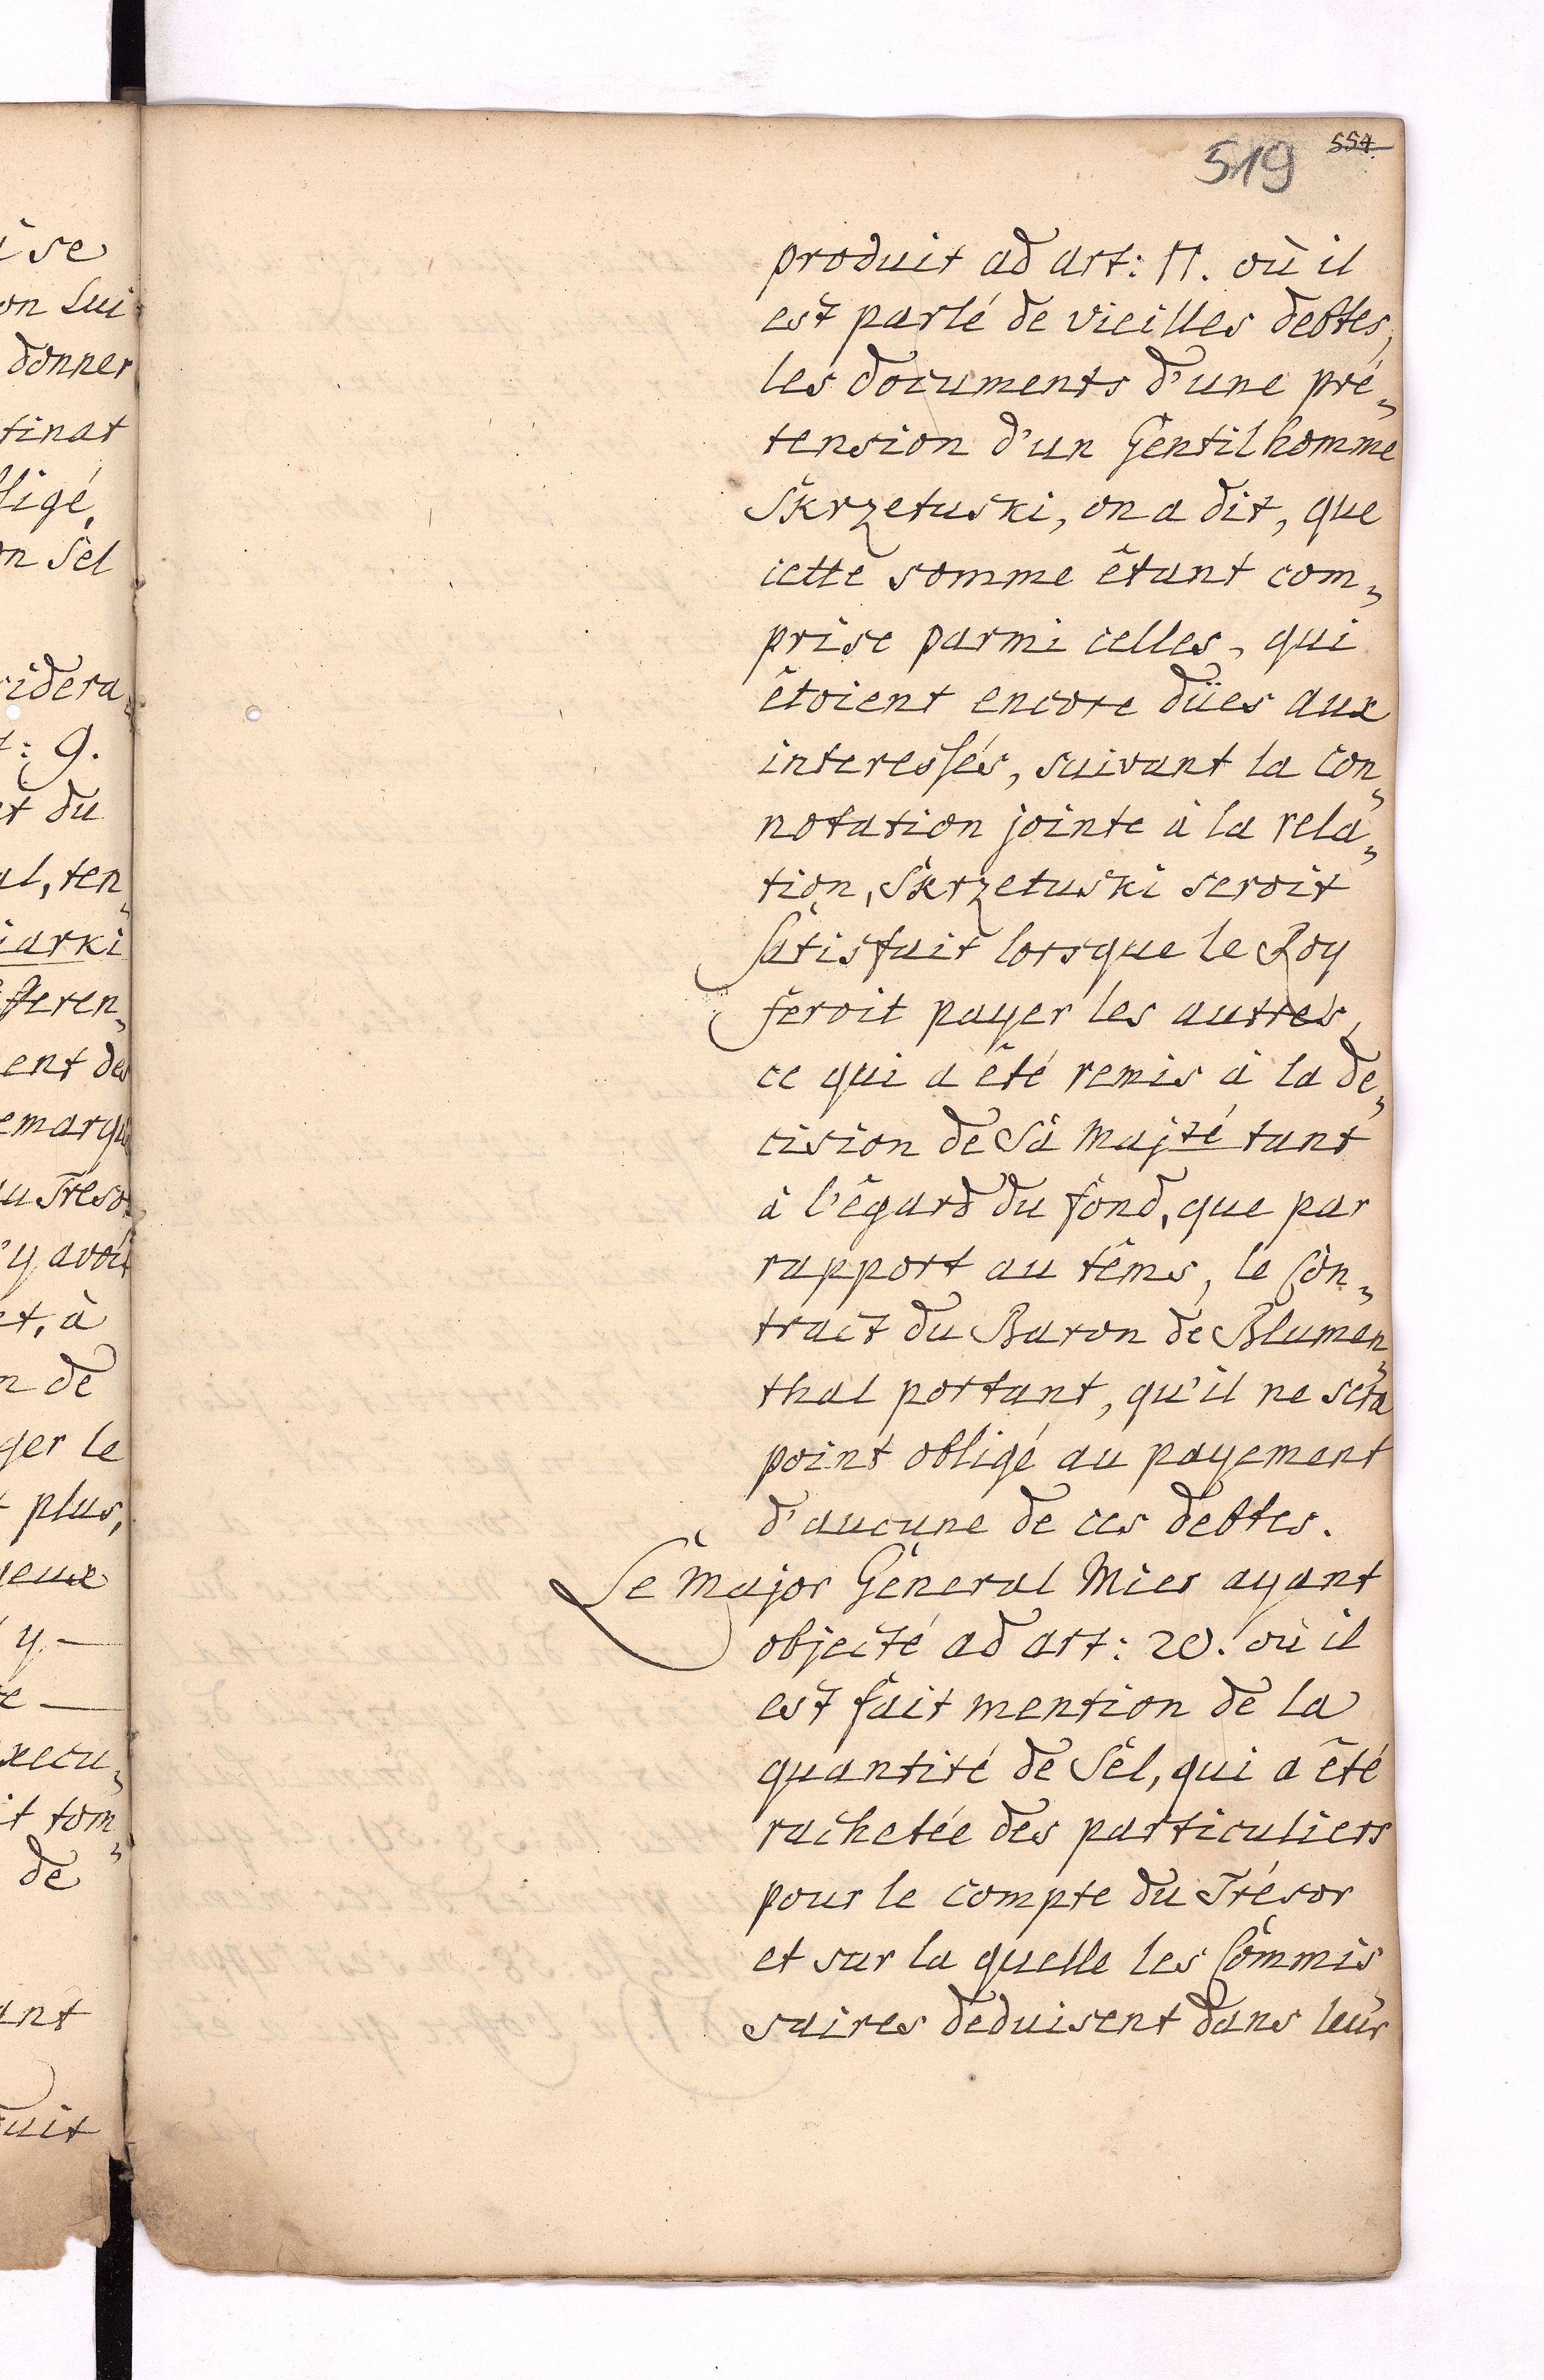 519 554.
produit ad art: 17. où il
est parlé de vieilles debtes,
les documents d'une pré„
tension d'un Gentilhomme
Skrzetuski, on a dit, que
cette somme êtant com„
prise parmi celles, qui
êtoient encore dües aux
interessés, suivant la con„
notation jointe à la rela„
tion, Skrzetuski seroit
Satisfait lorsque le Roy
feroit payer les autres,
ce qui a êté remis à la de„
cision de Sa Majté tant
à l'êgard du fond, que par
rapport au têms, le Con„
tract du Baron de Blumen„
thal portant, qu'il ne sera
point obligé au payement
d'aucune de ces debtes.
Le Major Général Mier ayant
objecté ad art: 20. où il
est fait mention de la
quantité de Sel, qui a êté
rachetée des particuliers
pour le compte du Trésor
et sur la quelle les Commis
saires deduisent dans leur
i se
on Lui
donner
tinat
ligé,
on Sel
sidera„
t: 9.
et du
al, ten„
iarki
fferen„
ent des
emarqu
au Treso
'y avoit
nt, à
n de
ger le
t plus,
yeux
y —
e —
xecu„
it tom„
de
ant
duit